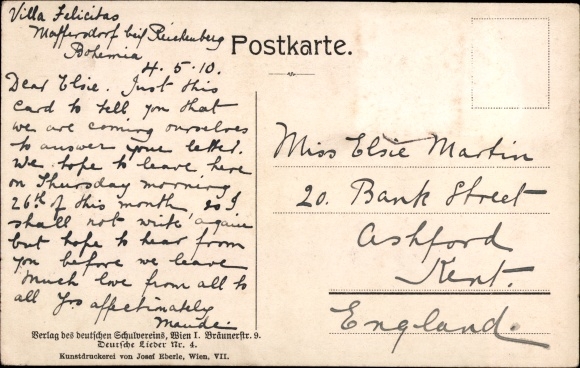 Villa Felicitas
Maffersdorf bei Reichenberg
Bohemia
4.5.10.
Postkarte.
Dear Elsie. Just this
card to tell you that
we are coming ourselves
to answer your letter.
We hope to leave here
on Thursday morning
26th of this month so I
shall not write again
but hope to hear from
you before we leave
Much love from all to
all Yrs affectinately
Maudei
Miss Elsie Martin
20. Bank Street
Ashford
Kent.
England.
Verlag des deutschen Schulvereins, Wien I. Bräunerstr. 9.
Deutsche Lieder Nr. 4.
Kunstdruckerei von Josef Eberle, Wien, VII.